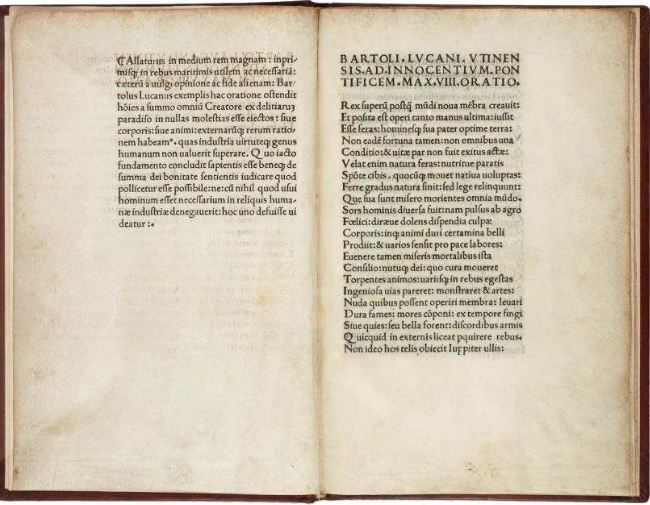 ¶Allaturus in medium rem magnam: inpri
misq; in rebus maritimis utilem ac necessariā:
cæterū a uulgi opinione ac fide alienam: Bar
tolus Lucanus exemplis hac oratione ostendit
hōies a summo omniū Creatore ex delitiarum
paradiso in nullas molestias esse eiectos: siue
corporis: siue animi: externarūq; rerum ratio-
nem habeam⁹. quas industria uirtuteq; genus
humanum non ualuerit superare. Quo iacto
fundamento concludit sapientis esse beneq; de
summa dei bonitate sentientis iudicare quod
pollicetur esse possibile: ne cū nihil quod usui
hominum esset necessarium in reliquis huma-
næ industriæ denegauerit: hoc uno defuisse ui
deatur:.
BARTOLI. LVCANI. VTINEN
SIS. AD. INNOCENTIVM. PON
TIFICEM. MAX. VIII. ORATIO.
Rex superū postq̄ mūdi noua mēbra creauit:
Et posita est operi tanto manus ultima: iussit
Esse feras: hominesq; sua pater optime terra:
Non eadē fortuna tamen: non omnibus una
Conditio: & uitæ par non fuit exitus actæ:
Velat enim natura feras: nutritue paratis
Spōte cibis. quocūq; mouet natiua uoluptas:
Ferre gradus natura sinit: sed lege relinquunt:
Que sua sunt misero morientes omnia mūdo.
Sors hominis diuersa fuit: nam pulsus ab agro
Fœlici: diræue dolens dispendia culpæ
Corporis: inq; animi duri certamina belli
Prodiit: & uarios sensit pro pace labores:
Euenere tamen miseris mortalibus ista
Consilio: nutuq; dei: quo cura moueret
Torpentes animos: uariisq; in rebus egestas
Ingeniosa uias pareret: monstraret & artes:
Nuda quibus possent operiri membra: leuari
Dura fames: mores cōponi: ex tempore fingi
Siue quies: seu bella forent: discordibus armis
Quicquid in externis liceat pquirere rebus.
Non ideo hos telis obiecit Iuppiter ullis: